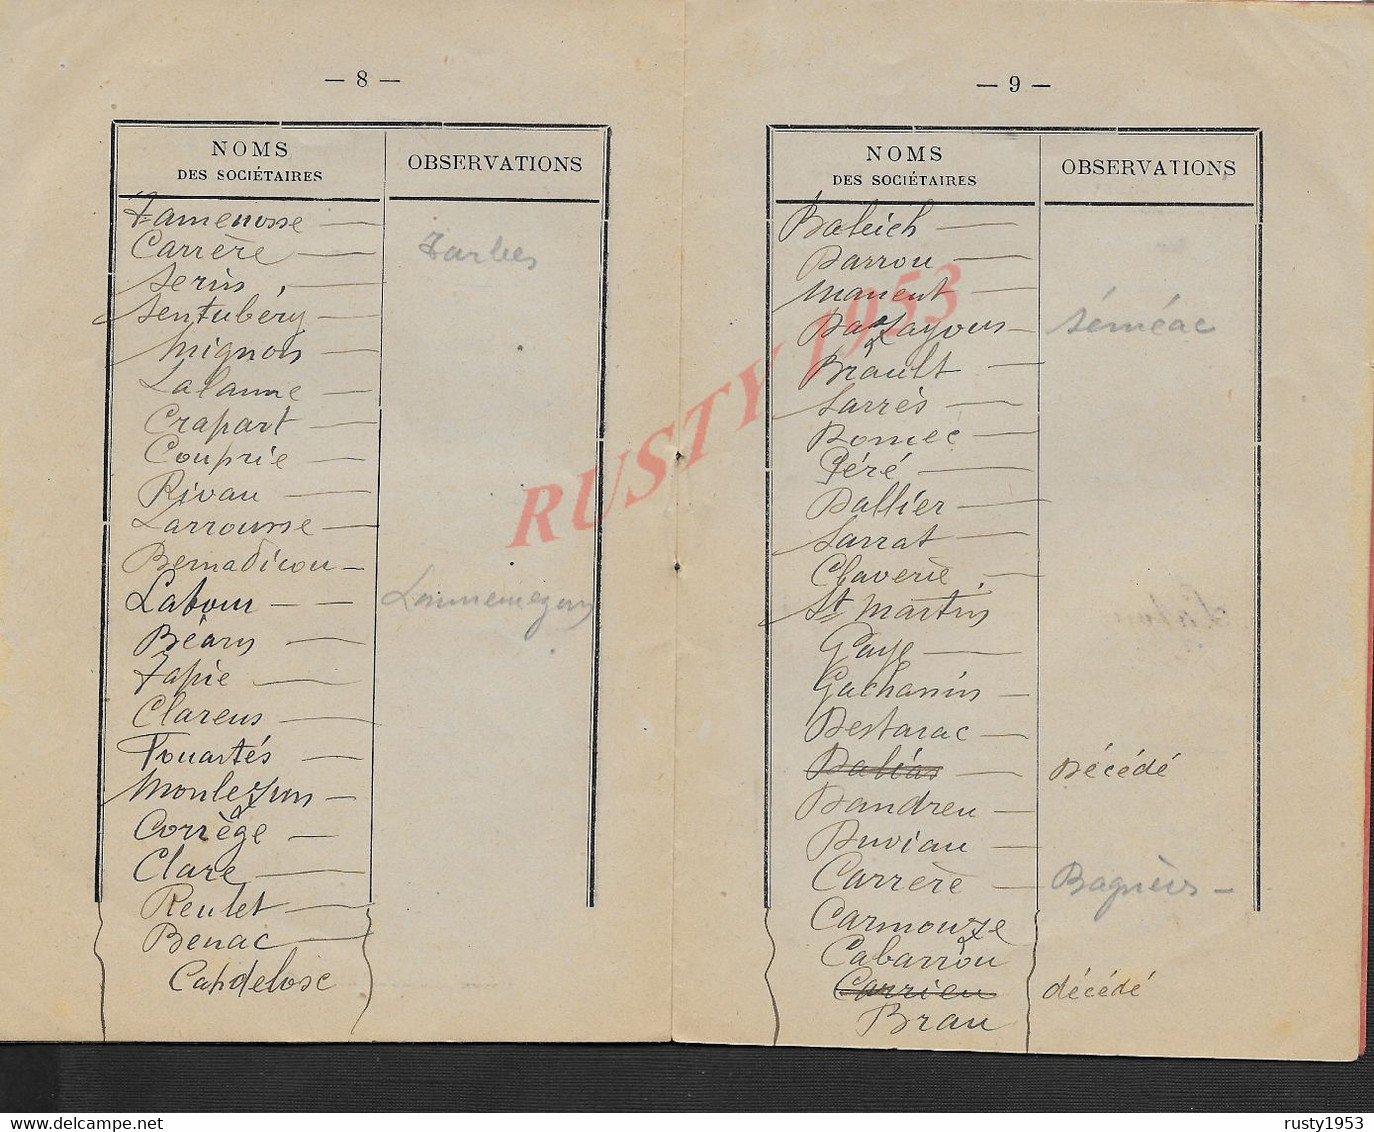 — 8 —
NOMS
DES SOCIÉTAIRES
OBSERVATIONS
Carrère — Tarbes
Serin
Sentubéry —
Mignon —
Lalanne —
Crapart —
Couprie —
Rivau —
Larrousse —
Bernadicou —
Latour — —
Béarn —
Tapie —
Clarens —
Fouartés —
Monlezun —
Corrège —
Clare —
Reulet —
Benac —
Capdelosc
— 9 —
NOMS
DES SOCIÉTAIRES
OBSERVATIONS
Baleich —
Barrou —
Manent —
Dazayous — Séméac
Brault —
Sarrès —
Romec —
Péré —
Dallier —
Sarrat —
Claverie —
St Martin
Gaye —
Gachassin —
Destarac —
Daléas — Décédé
Dandreu —
Duviau —
Carrère — Bagnères —
Carmouze
Cabarrou
Carrieu décédé
Brau
RUSTY 1953
delcampe.net
rusty1953